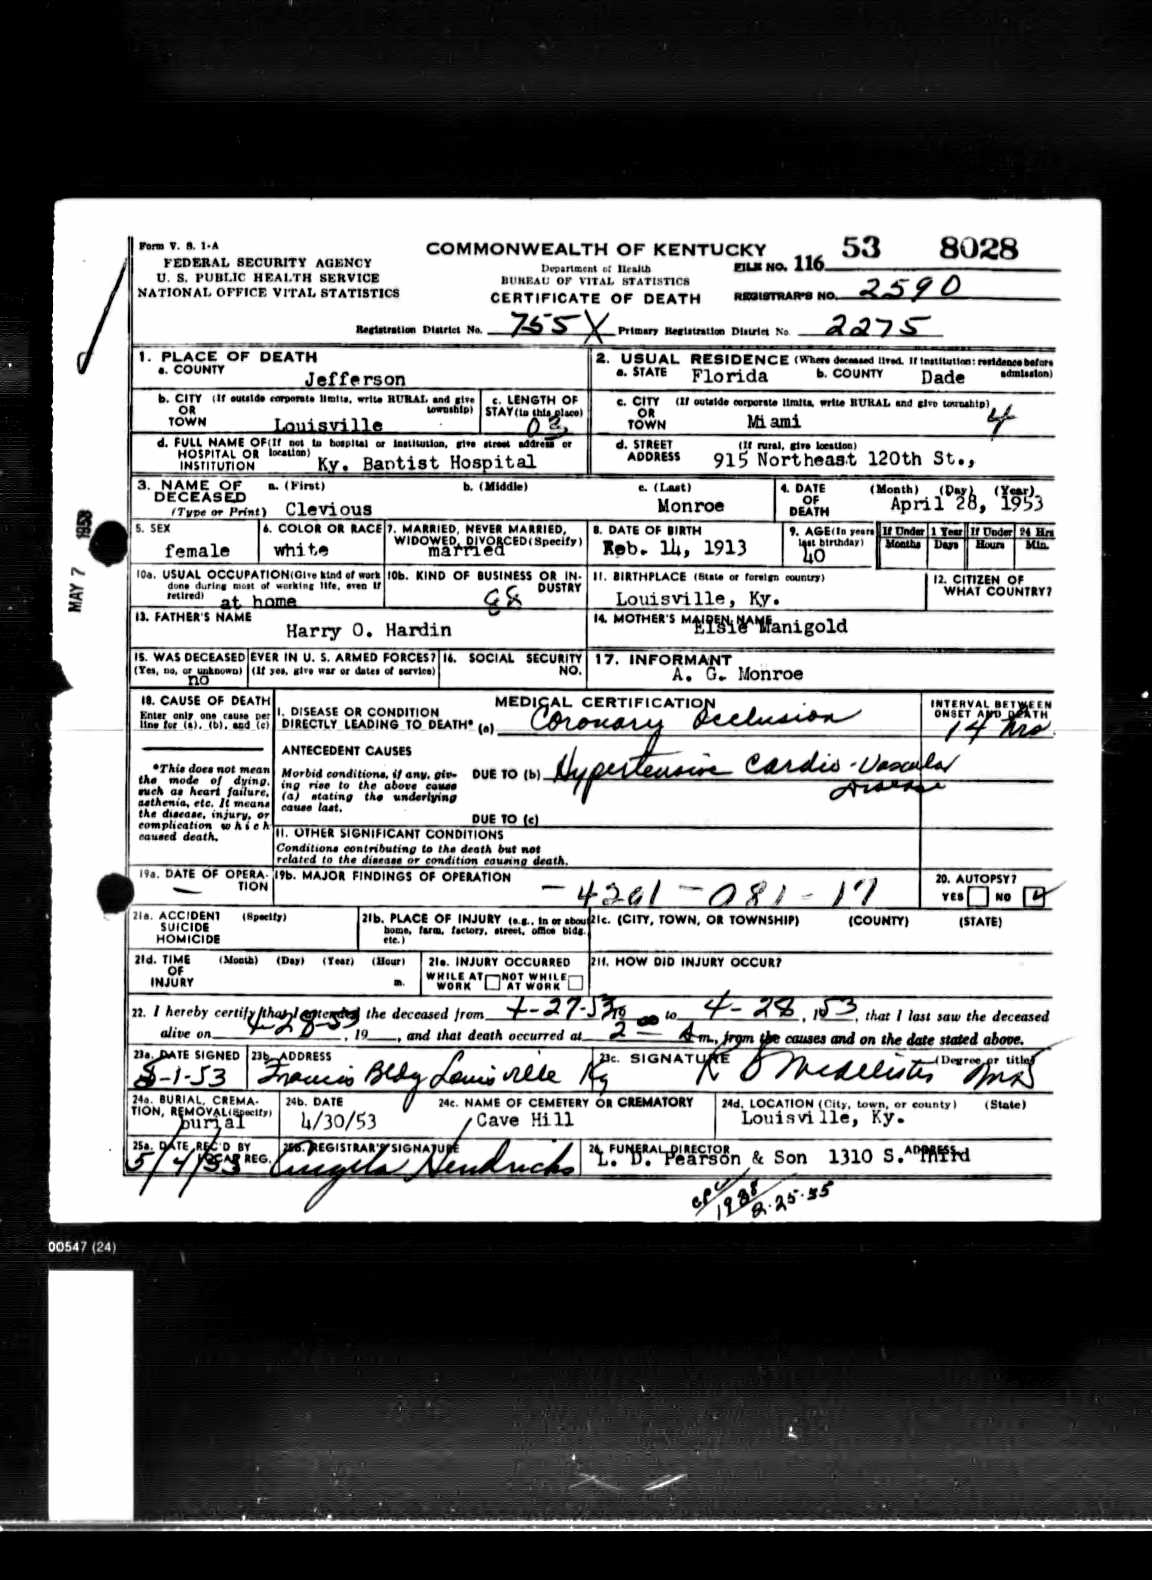 Form V. S. 1-A
FEDERAL SECURITY AGENCY
U. S. PUBLIC HEALTH SERVICE
NATIONAL OFFICE VITAL STATISTICS
COMMONWEALTH OF KENTUCKY
Department of Health
BUREAU OF VITAL STATISTICS
CERTIFICATE OF DEATH
FILE NO. 116 53 8028
REGISTRAR'S NO. 2590
Registration District No. 755 X Primary Registration District No. 2275
1. PLACE OF DEATH
a. COUNTY
Jefferson
2. USUAL RESIDENCE (Where deceased lived. If institution: residence before admission)
a. STATE Florida b. COUNTY Dade
b. CITY (If outside corporate limits, write RURAL and give township)
OR
TOWN Louisville
c. LENGTH OF
STAY (in this place)
c. CITY (If outside corporate limits, write RURAL and give township)
OR
TOWN Miami 4
d. FULL NAME OF (If not in hospital or institution, give street address or location)
HOSPITAL OR
INSTITUTION Ky. Baptist Hospital
d. STREET (If rural, give location)
ADDRESS 915 Northeast 120th St.,
3. NAME OF
DECEASED
(Type or Print)
a. (First) b. (Middle) c. (Last)
Clevious Monroe
4. DATE (Month) (Day) (Year)
OF
DEATH April 28, 1953
5. SEX
female
6. COLOR OR RACE
white
7. MARRIED, NEVER MARRIED,
WIDOWED, DIVORCED (Specify)
married
8. DATE OF BIRTH
Feb. 14, 1913
9. AGE (In years
last birthday)
40
If Under 1 Year
Months Days
If Under 24 Hrs
Hours Min.
10a. USUAL OCCUPATION (Give kind of work
done during most of working life, even if
retired) at home
10b. KIND OF BUSINESS OR IN-
DUSTRY
11. BIRTHPLACE (State or foreign country)
Louisville, Ky.
12. CITIZEN OF
WHAT COUNTRY?
13. FATHER'S NAME
Harry O. Hardin
14. MOTHER'S MAIDEN NAME
Elsie Manigold
15. WAS DECEASED EVER IN U. S. ARMED FORCES?
(Yes, no, or unknown) (If yes, give war or dates of service)
no
16. SOCIAL SECURITY
NO.
17. INFORMANT
A. G. Monroe
18. CAUSE OF DEATH
Enter only one cause per
line for (a), (b), and (c)
*This does not mean
the mode of dying,
such as heart failure,
asthenia, etc. It means
the disease, injury, or
complication which
caused death.
MEDICAL CERTIFICATION
I. DISEASE OR CONDITION
DIRECTLY LEADING TO DEATH* (a) Coronary Occlusion
INTERVAL BETWEEN
ONSET AND DEATH
14 hrs.
ANTECEDENT CAUSES
Morbid conditions, if any, giv-
ing rise to the above cause
(a) stating the underlying
cause last.
DUE TO (b) Hypertensive Cardio-Vascular
Disease
DUE TO (c)
II. OTHER SIGNIFICANT CONDITIONS
Conditions contributing to the death but not
related to the disease or condition causing death.
19a. DATE OF OPERA-
TION
19b. MAJOR FINDINGS OF OPERATION
- 4201 - 081 - 17
20. AUTOPSY?
YES NO
21a. ACCIDENT (Specify)
SUICIDE
HOMICIDE
21b. PLACE OF INJURY (e.g., in or about
home, farm, factory, street, office bldg.
etc.)
21c. (CITY, TOWN, OR TOWNSHIP) (COUNTY) (STATE)
21d. TIME (Month) (Day) (Year) (Hour)
OF
INJURY m.
21e. INJURY OCCURRED
WHILE AT WORK NOT WHILE AT WORK
21f. HOW DID INJURY OCCUR?
22. I hereby certify that I attended the deceased from 4-27-53 19 to 4-28, 1953, that I last saw the deceased
alive on 4-28-53, 19, and that death occurred at 2 00 A m., from the causes and on the date stated above.
23a. DATE SIGNED
5-1-53
23b. ADDRESS
Francis Bldg Louisville Ky
23c. SIGNATURE (Degree or title)
K D McAllister MD
24a. BURIAL, CREMA-
TION, REMOVAL (Specify)
burial
24b. DATE
4/30/53
24c. NAME OF CEMETERY OR CREMATORY
Cave Hill
24d. LOCATION (City, town, or county) (State)
Louisville, Ky.
25a. DATE REC'D BY
LOCAL REG.
5/4/53
25b. REGISTRAR'S SIGNATURE
Hendricks
26. FUNERAL DIRECTOR ADDRESS
L. D. Pearson & Son 1310 S. Third
2-25-55
MAY 7 1953
00547 (24)